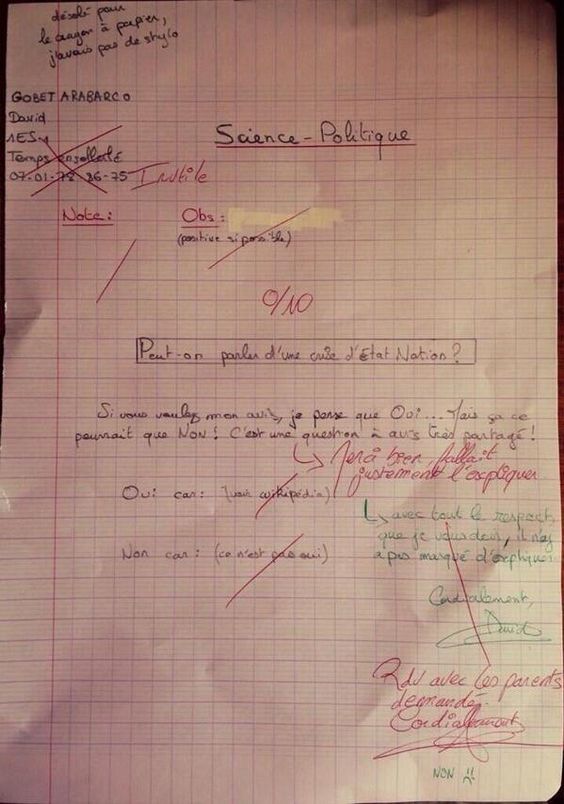 désolé pour
le crayon à papier,
j'avais pas de stylo
GOBET ARABARCO
David
1ES4
Temps ensolleillé
07-01-78 86-75 Inutile
Science-Politique
Note: Obs:
(positive si possible)
0/10
Peut-on parler d'une crise d'État Nation?
Si vous voulez mon avis, je pense que Oui... Mais ça ce
pourrait que NON! C'est une question à avis très partagé!
↳ Ben il fallait
justement l'expliquer
Oui car: (voir wikipédia)
↳ avec tout le respect
que je vous dois, il n'y
a pas marqué d'expliquer
Non car: (ce n'est pas oui)
Cordialement,
David
Rdv avec les parents
demandé.
Cordialement
NON